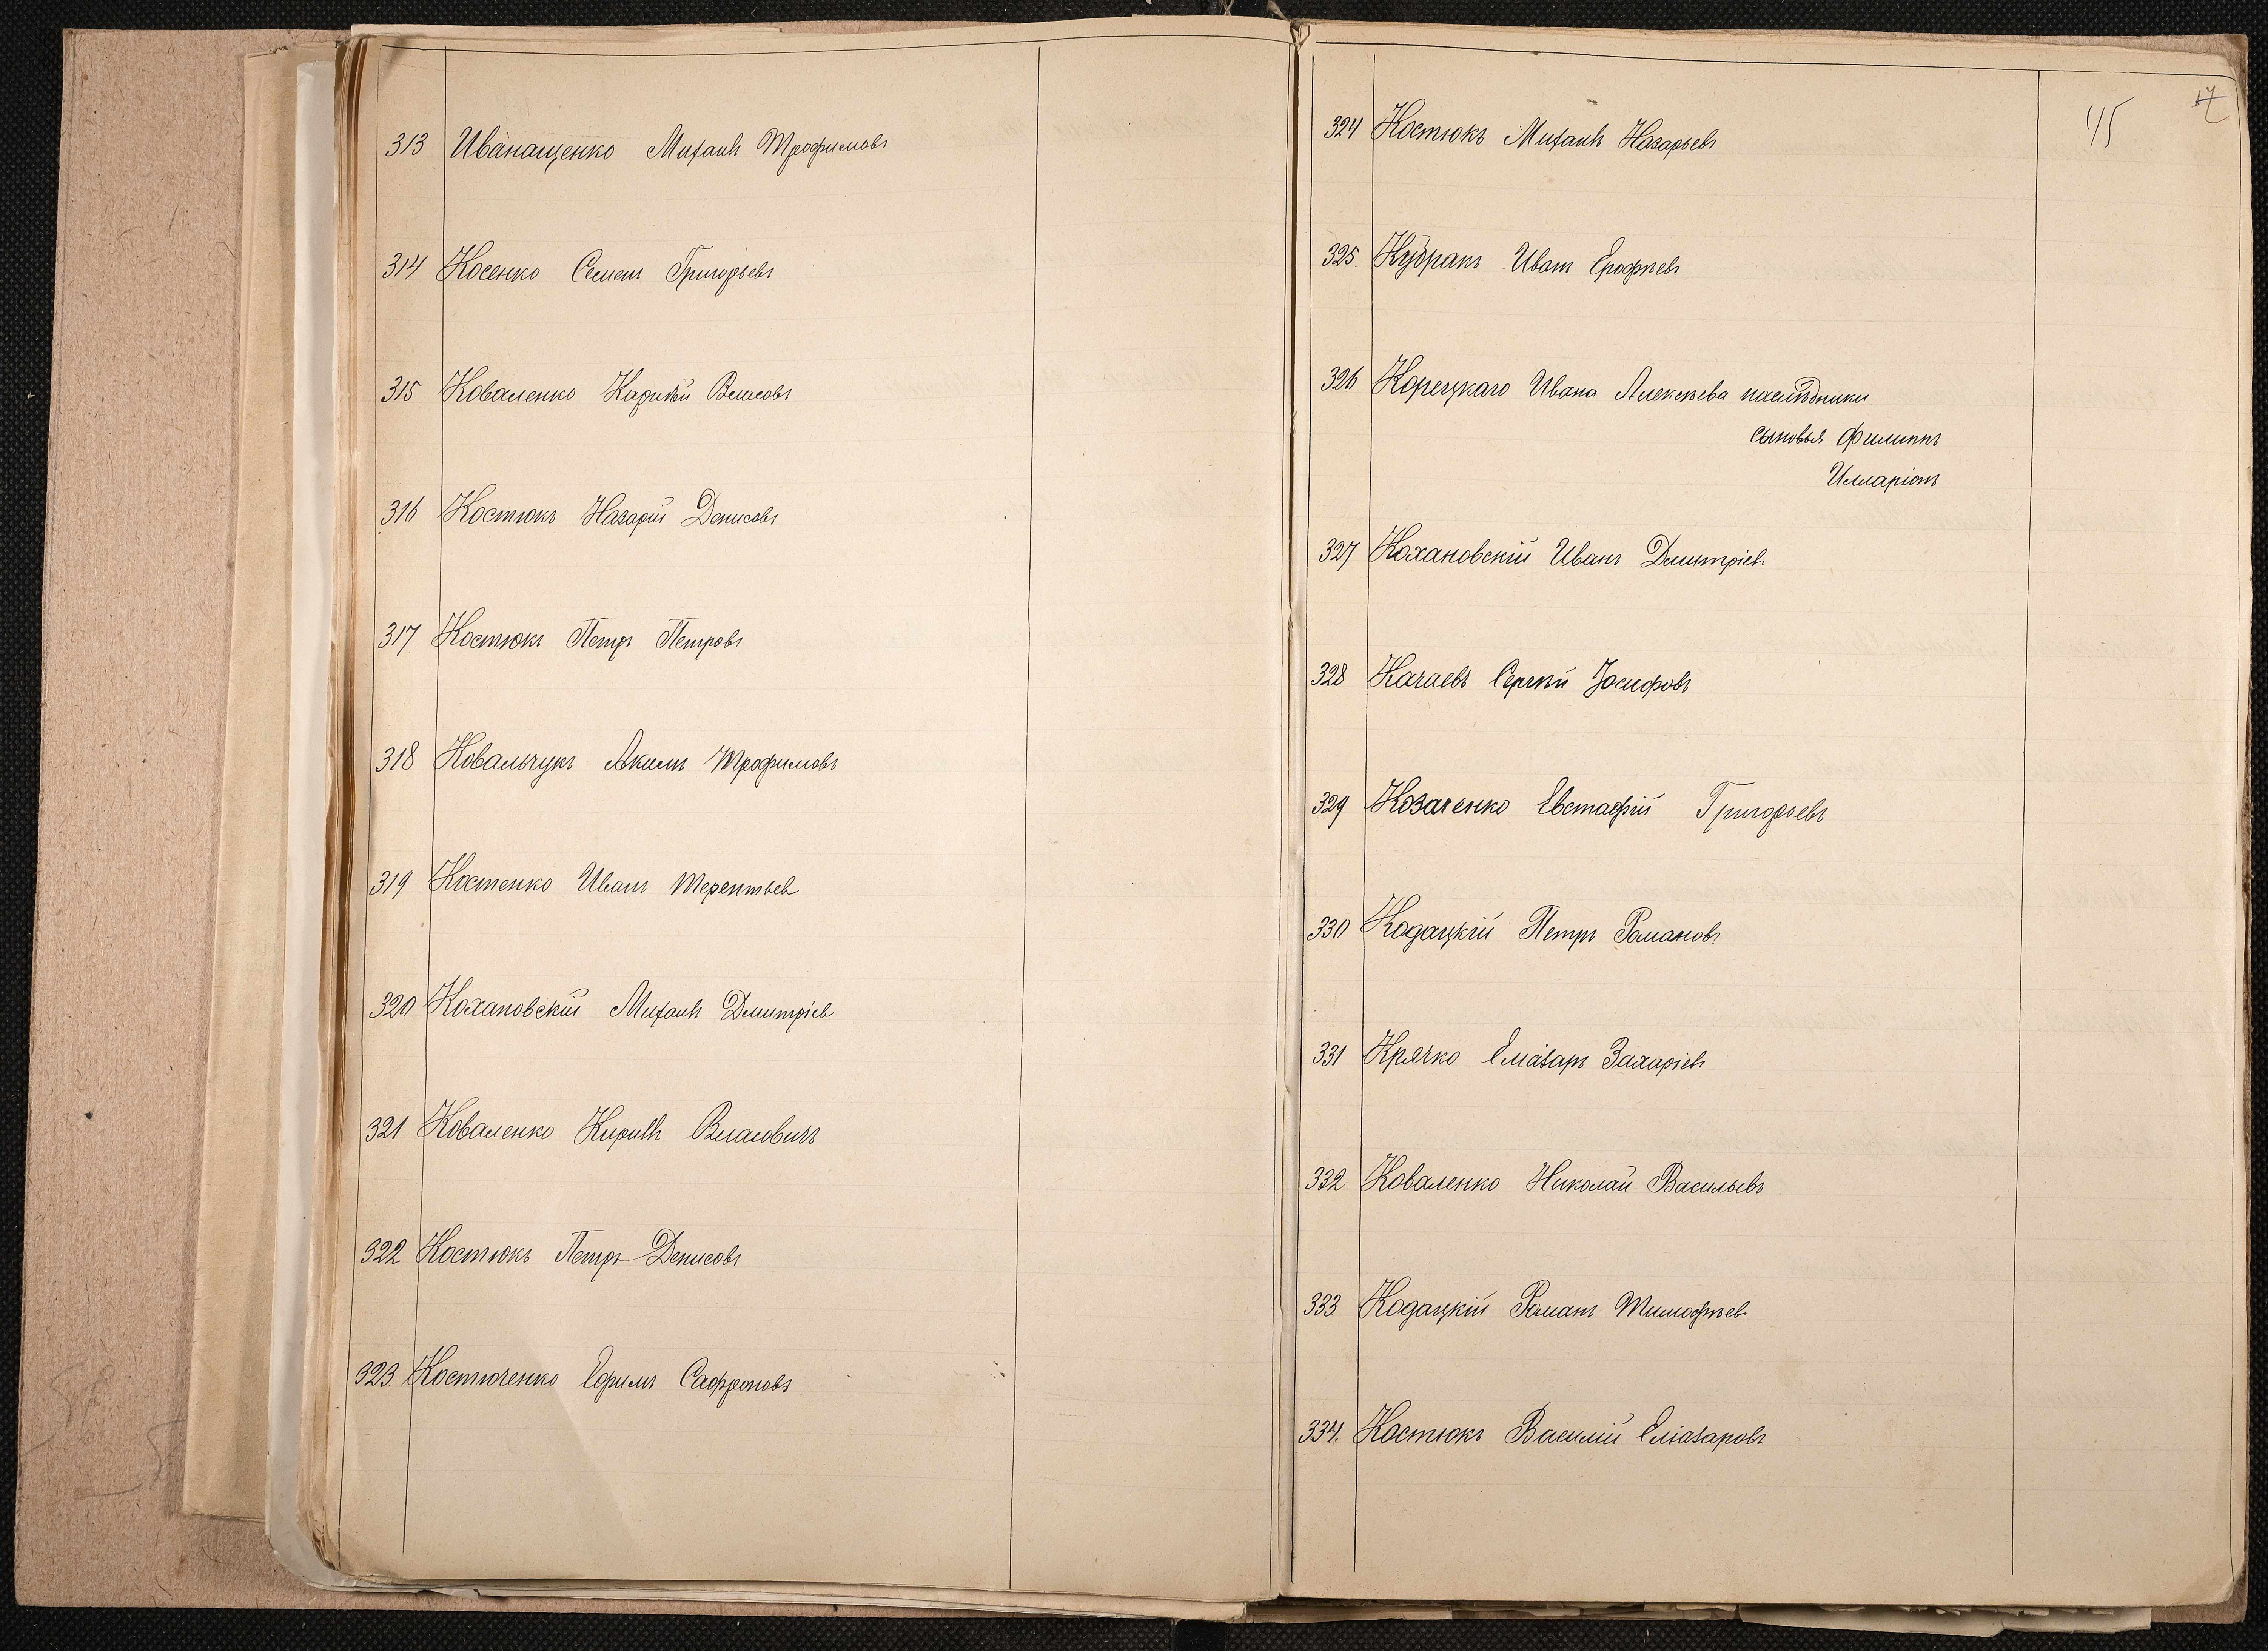 313 Иванащенко Михаилъ Трофимовъ
314 Косенко Семенъ Григорьевъ
315 Коваленко Карпѣй Власовъ
316 Костюкъ Назарій Денисовъ
317 Костюкъ Петръ Петровъ
318 Ковальчукъ Акимъ Трофимовъ
319 Костенко Иванъ Терентьев
320 Кохановскій Михаилъ Дмитріев
321 Коваленко Кирилъ Власовичъ
322 Костюкъ Петръ Денисовъ
323 Костюченко Ефимъ Сафроновъ
45
324 Костюкъ Михаилъ Назарьевъ
325 Кубракъ Иванъ Ерофѣевъ
326 Корецкаго Ивана Алексѣева наслѣдники
сыновья Филиппъ
Илларіонъ
327 Кохановскій Иванъ Дмитріев
328 Качаевъ Сергѣй Іосифовъ
329 Козаченко Евстафій Григорьевъ
330 Кодацкій Петръ Романовъ
331 Крячко Еліазаръ Захаріевъ
332 Коваленко Николай Васильевъ
333 Кодацкій Романъ Тимофѣев
334. Костюкъ Василій Еліазаровъ